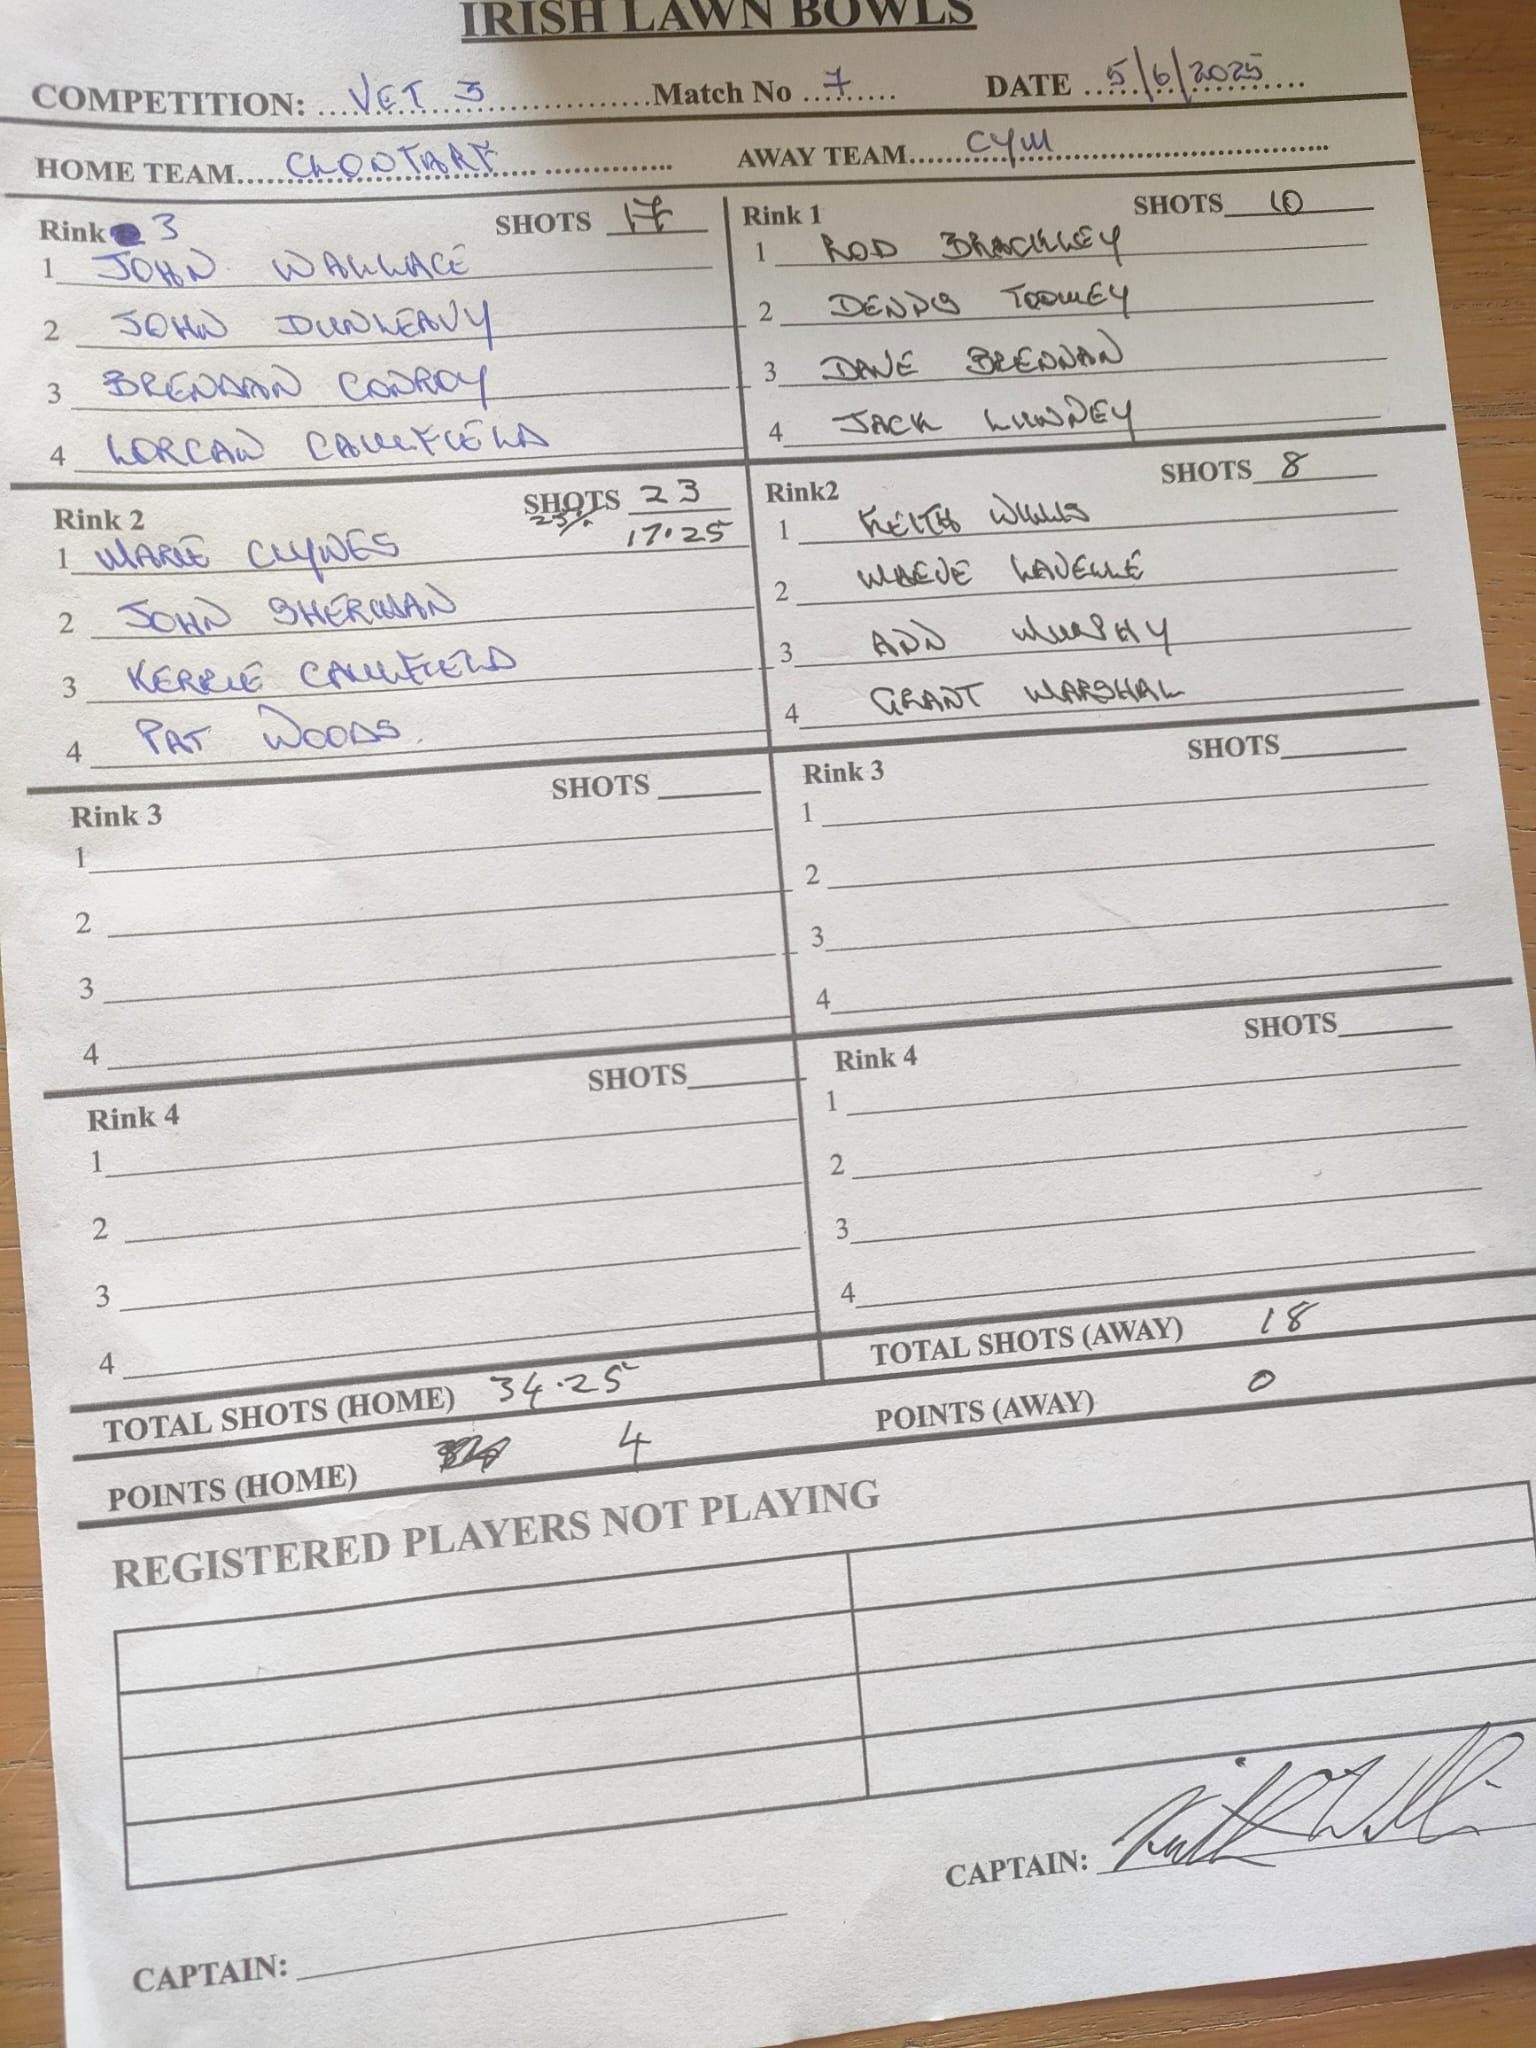 IRISH LAWN BOWLS
COMPETITION: VET 3 Match No 7 DATE 5/6/2025
HOME TEAM CLONTARF AWAY TEAM CYM
Rink 3 SHOTS 17
1 JOHN WALLACE
2 JOHN DUNLEAVY
3 BRENDAN CONROY
4 LORCAN CAULFIELD
Rink 1 SHOTS 10
1 ROD BRACKLEY
2 DENNIS TOOMEY
3 DAVE BRENNAN
4 JACK LUNNEY
Rink 2 SHOTS 23
25% 17.25
1 MARIE CLYNES
2 JOHN SHERIDAN
3 KERRIE CAULFIELD
4 PAT WOODS.
Rink2 SHOTS 8
1 KEITH WILLIS
2 MAEVE LAVELLE
3 ANN MURPHY
4 GRANT MARSHAL
Rink 3 SHOTS
1
2
3
4
Rink 3 SHOTS
1
2
3
4
Rink 4 SHOTS
1
2
3
4
Rink 4 SHOTS
1
2
3
4
TOTAL SHOTS (HOME) 34.25
TOTAL SHOTS (AWAY) 18
POINTS (HOME) 4
POINTS (AWAY) 0
REGISTERED PLAYERS NOT PLAYING
CAPTAIN: Keith Willis
CAPTAIN: